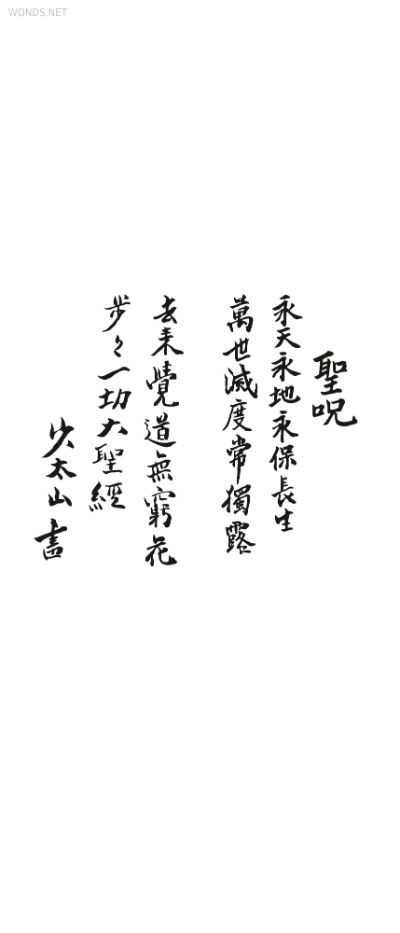 WONDS.NET
聖呪
永天永地永保長生
萬世滅度常獨露
去来覺道無窮花
步々一切大聖經
少太山書